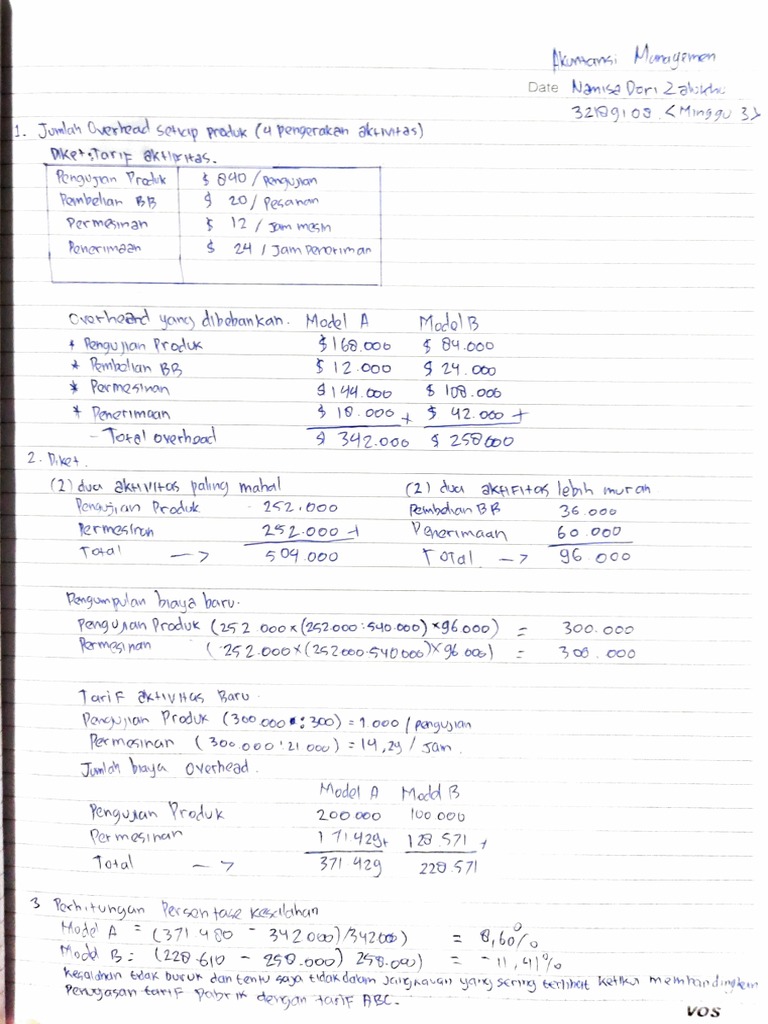 Akuntansi Manajemen
Date Nanisa Dori Zalukhu
32189108 <Minggu 3>
1. Jumlah Overhead setiap produk (4 pengerakan aktivitas)
Diket : Tarif aktifitas.
Pengujian Produk $ 840 / Pengujian
Pembelian BB $ 20 / Pesanan
Permesinan $ 12 / Jam mesin
Penerimaan $ 24 / Jam Peneriman
Overheard yang dibebankan. Model A Model B
* Pengujian Produk $ 168.000 $ 84.000
* Pembelian BB $ 12.000 $ 24.000
* Permesinan $ 144.000 $ 108.000
* Penerimaan $ 18.000 + $ 42.000 +
- Total overhead $ 342.000 $ 258000
2. Diket.
(2) dua aktivitas paling mahal (2) dua aktifitas lebih murah
Pengujian Produk 252.000 Pembelian BB 36.000
Permesinan 252.000 + Penerimaan 60.000
Total -> 504.000 Total -> 96.000
Pengumpulan biaya baru.
Pengujian Produk (252.000 x (252000 : 540.000) x 96000) = 300.000
Permesinan (252.000 x (252000.540000) x 96000) = 300.000
Tarif aktivitas Baru.
Pengujian Produk (300.000 : 300) = 1.000 / pengujian
Permesinan (300.000 : 21.000) = 14,29 / Jam.
Jumlah biaya overhead.
Model A Model B
Pengujian Produk 200000 100.000
Permesinan 171429 + 128.571 +
Total -> 371.429 228.571
3 Perhitungan Persentase Kesalahan
Model A = (371.480 - 342000)/342000) = 8,60%
Model B : (228.610 - 258.000) 258.000) = -11,41%
Kesalahan tidak buruk dan tentu saja tidak dalam jangkauan yang sering terlihat ketika membandingkan
Penugasan tarif pabrik dengan tarif ABC.
VOS